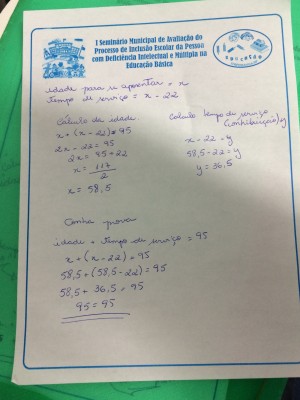 I Seminário Municipal de Avaliação do
Processo de Inclusão Escolar da Pessoa
com Deficiência Intelectual e Múltipla na
Educação Básica
idade para se aposentar = x
tempo de serviço = x - 22
Cálculo da idade
x + (x - 22) = 95
2x - 22 = 95
2x = 95 + 22
x = 117
2
x = 58,5
Cálculo tempo de serviço
(contribuição) y
x - 22 = y
58,5 - 22 = y
y = 36,5
idade + tempo de serviço = 95
x + (x - 22) = 95
58,5 + (58,5 - 22) = 95
58,5 + 36,5 = 95
95 = 95